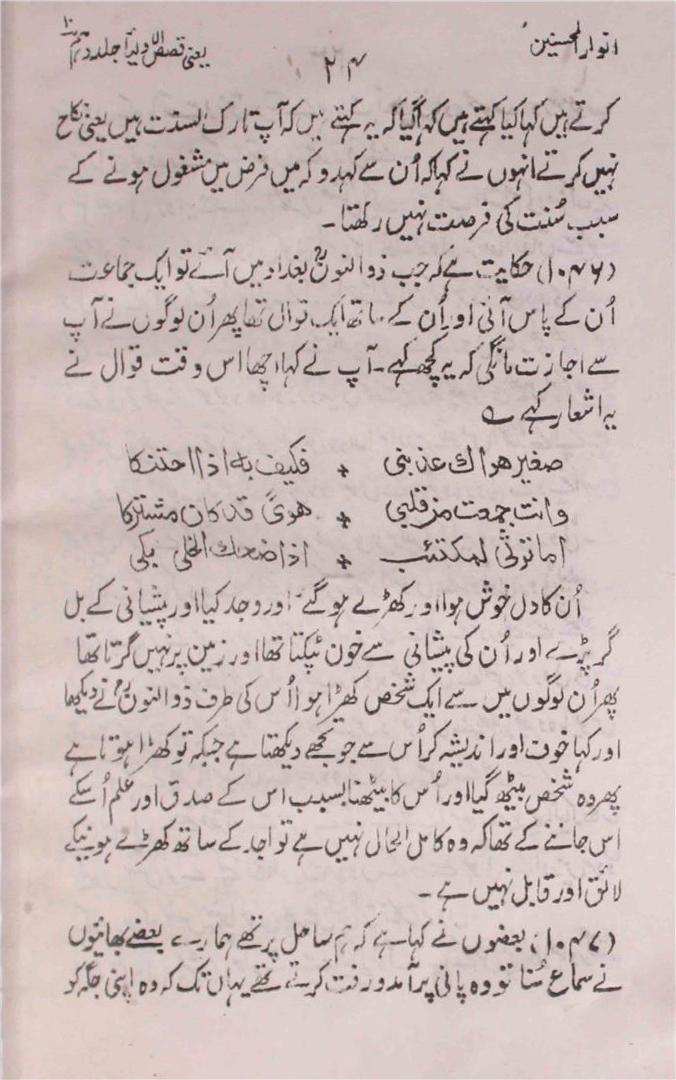 انوار المحسنین
۲۴
یعنی قصص الاولیاء جلد دہم
کرتے ہیں کہا کیا کہتے ہیں کہا گیا کہ یہ کہتے ہیں کہ آپ تارک السنت ہیں یعنی نکاح
نہیں کرتے انہوں نے کہا کہ اُن سے کہدو کہ میں فرض میں مشغول ہونے کے
سبب سُنت کی فرصت نہیں رکھتا۔
(۱۰۴۶) حکایت ہے کہ جب ذوالنونؒ بغداد میں آئے تو ایک جماعت
اُن کے پاس آئی اور اُن کے ساتھ ایک قوال تھا پھر اُن لوگوں نے آپ
سے اجازت مانگی کہ یہ کچھ کہے۔ آپ نے کہا اچھا اس وقت قوال نے
یہ اشعار کہے ؎
صغیر هواك عذبنی ٭ فکیف به اذا احتنکا
وانت جمعت من قلبی ٭ هویً قد کان مشترکا
اما ترثی لمکتئب ٭ اذا ضحك الخلی بکی
اُن کا دل خوش ہوا اور کھڑے ہو گئے اور وجد کیا اور پیشانی کے بل
گر پڑے اور اُن کی پیشانی سے خون ٹپکتا تھا اور زمین پر نہیں گرتا تھا
پھر اُن لوگوں میں سے ایک شخص کھڑا ہوا اُس کی طرف ذوالنونؒ نے دیکھا
اور کہا خوف اور اندیشہ کر اُس سے جو تجھے دیکھتا ہے جبکہ تو کھڑا ہوتا ہے
پھر وہ شخص بیٹھ گیا اور اُس کا بیٹھنا بسبب اس کے صدق اور علم اُسکے
اس جاننے کے تھا کہ وہ کامل الحال نہیں ہے تواجد کے ساتھ کھڑے ہونیکے
لائق اور قابل نہیں ہے۔
(۱۰۴۷) بعضوں نے کہا ہے کہ ہم ساحل پر تھے ہمارے بعضے بھائیوں
نے سماع سُنا تو وہ پانی پر آمد و رفت کرتے تھے یہاں تک کہ وہ اپنی جگہ کو